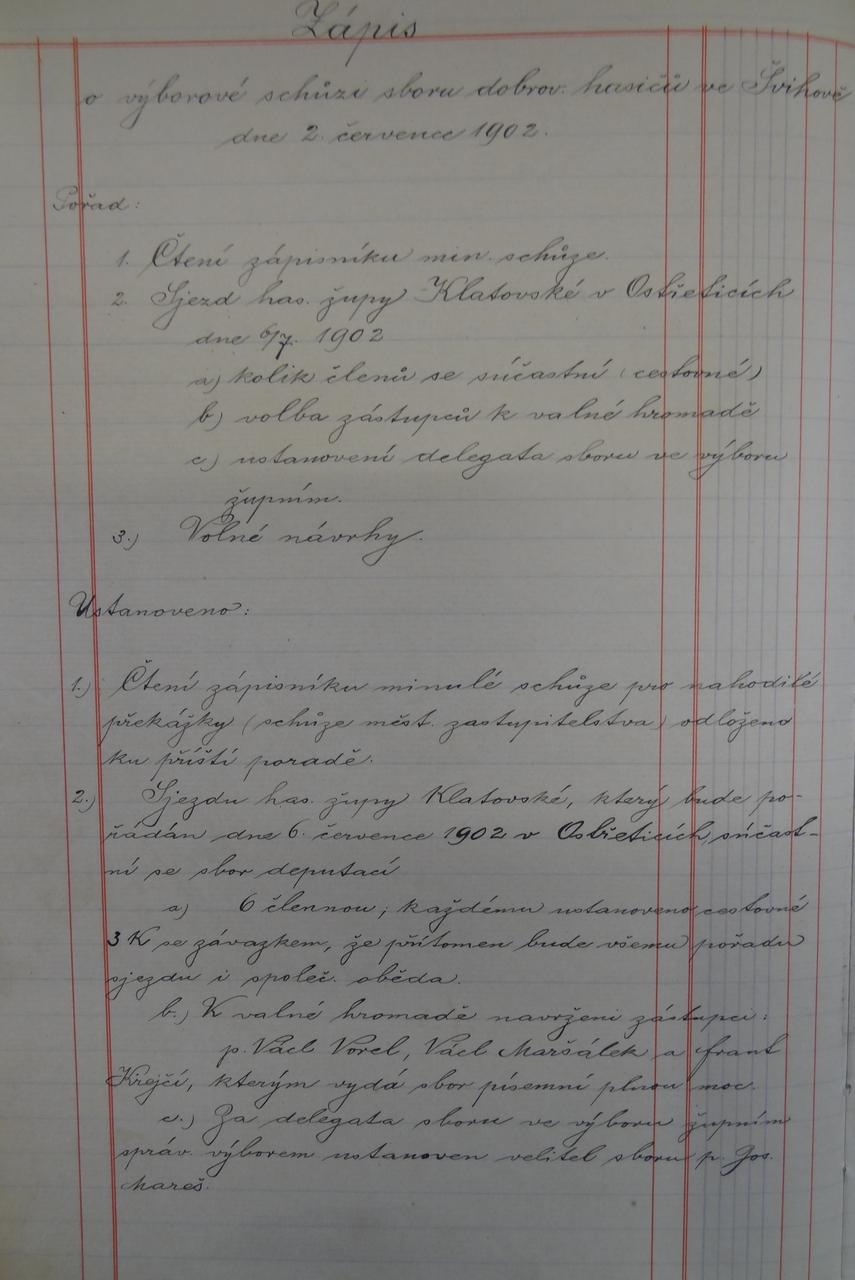 Zápis
o výborové schůzi sboru dobrov. hasičů ve Švihově
dne 2. července 1902.
Pořad:
1. Čtení zápisníku min. schůze.
2. Sjezd has. župy Klatovské v Ostřeticích
dne 6/7. 1902
a) kolik členů se súčastní (cestovné)
b) volba zástupců k valné hromadě
c) ustanovení delegata sboru ve výboru
župním.
3.) Volné návrhy.
Ustanoveno:
1.) Čtení zápisníku minulé schůze pro nahodilé
překážky (schůze měst. zastupitelstva) odloženo
ku příští poradě.
2.) Sjezdu has. župy Klatovské, který bude po-
řádán dne 6. července 1902 v Ostřeticích, súčast-
ní se sbor deputací
a) 6 člennou; každému ustanoveno cestovné
3 K se závazkem, že přítomen bude všemu pořadu
sjezdu i společ. oběda.
b.) K valné hromadě navrženi zástupci:
p. Václ Vorel, Václ Maršálek a frant
Krejčí, kterým vydá sbor písemní plnou moc.
c.) Za delegata sboru ve výboru župním
správ. výborem ustanoven velitel sboru p. Jos.
Mareš.